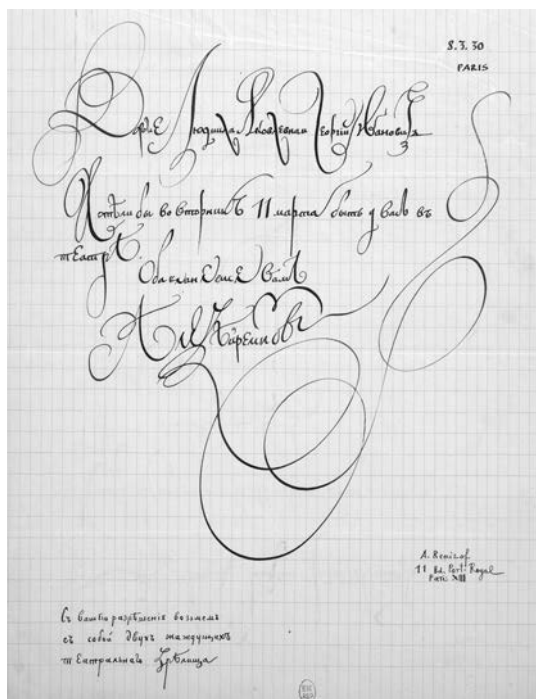 8.3.30
PARIS
Людмила Яковлевна Георгий Ивановичъ
Хотѣли бы во вторникъ 11 марта быть у васъ въ
театрѣ.
вамъ
A. Remizof
11 Bd. Port-Royal
Paris XIII
Съ вашего разрѣшенiе возьмемъ
съ собой двухъ жаждущихъ
театральнаго зрѣлища